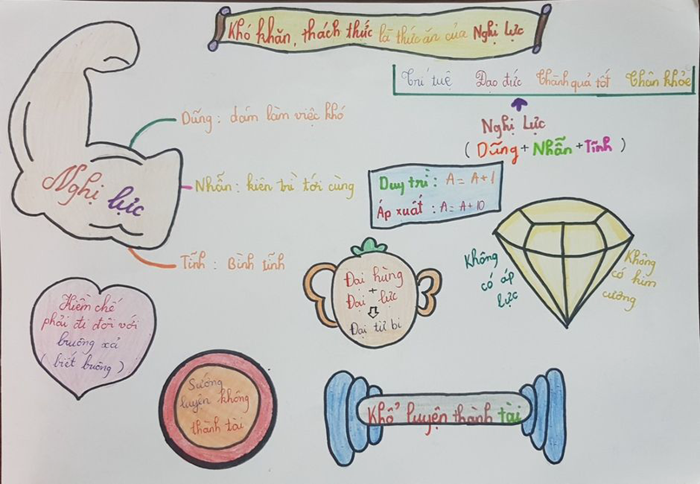 Khó khăn, thách thức là thức ăn của Nghị Lực
Trí tuệ Đạo đức Thành quả tốt Thân khỏe
Nghị Lực
( Dũng + Nhẫn + Tĩnh )
Dũng : dám làm việc khó
Nhẫn : kiên trì tới cùng
Tĩnh : Bình tĩnh
Nghị lực
Duy trì : A = A + 1
Áp xuất : A = A + 10
Không
có áp
lực
Không
có kim
cương
Đại hùng
+
Đại lực
Đại từ bi
Kiềm chế
phải đi đôi với
buông xả
( biết buông )
Sướng
luyện không
thành tài
Khổ luyện thành tài